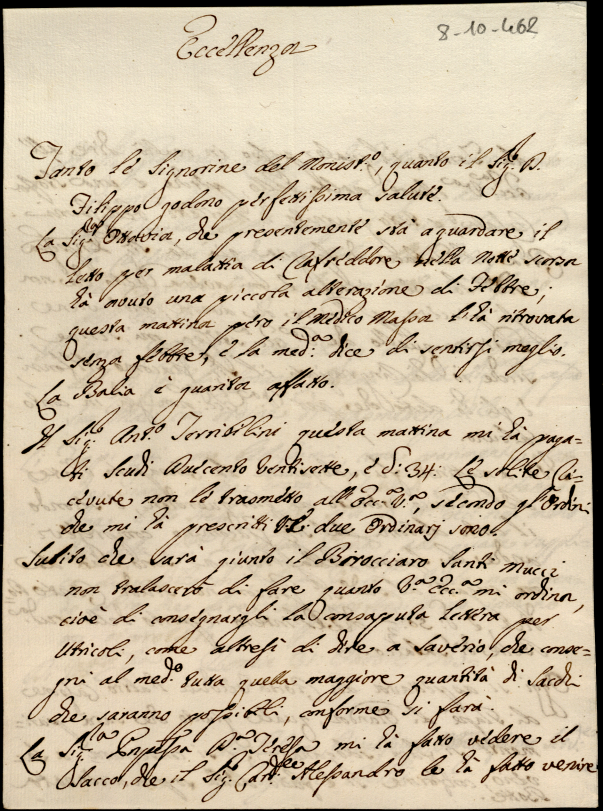 8-10-462
Eccellenza
Tanto le Signorine del Monist.o, quanto il Sig.r D.
Filippo godono perfettissima salute.
La Sig.ra Ottavia, che presentemente stà a guardare il
letto per malattia di Cafreddore nella notte scorsa
hà avuto una piccola alterazione di Febbre;
questa mattina però il Medico Massa l'hà ritrovata
senza febbre, è la med.a dice di sentirsi meglio.
La Balia è guarita affatto.
Il Sig.r Ant.o Terribilini questa mattina mi hà paga-
ti Scudi Duecento Ventisette, è d: 34: Le solite Ri-
cevute non le trasmetto all'Ecc.a V.a, secondo gl'Ordini
che mi hà prescritti due Ordinarj sono.
Subito che sarà giunto il Barocciaro Santi Mucci
non tralascerò di fare quanto V.a Ecc.a mi ordina,
cioè di consegnargli la consaputa lettera per
Utricoli, come altresì di dire a Saverio, che conse-
gni al med.o tutta quella maggiore quantità di Sacchi
che saranno possibili, conforme si farà.
La Sig.ra D.a Teresa mi hà fatto vedere il
Sacco, che il Sig.r Card.le Alessandro le hà fatto venire